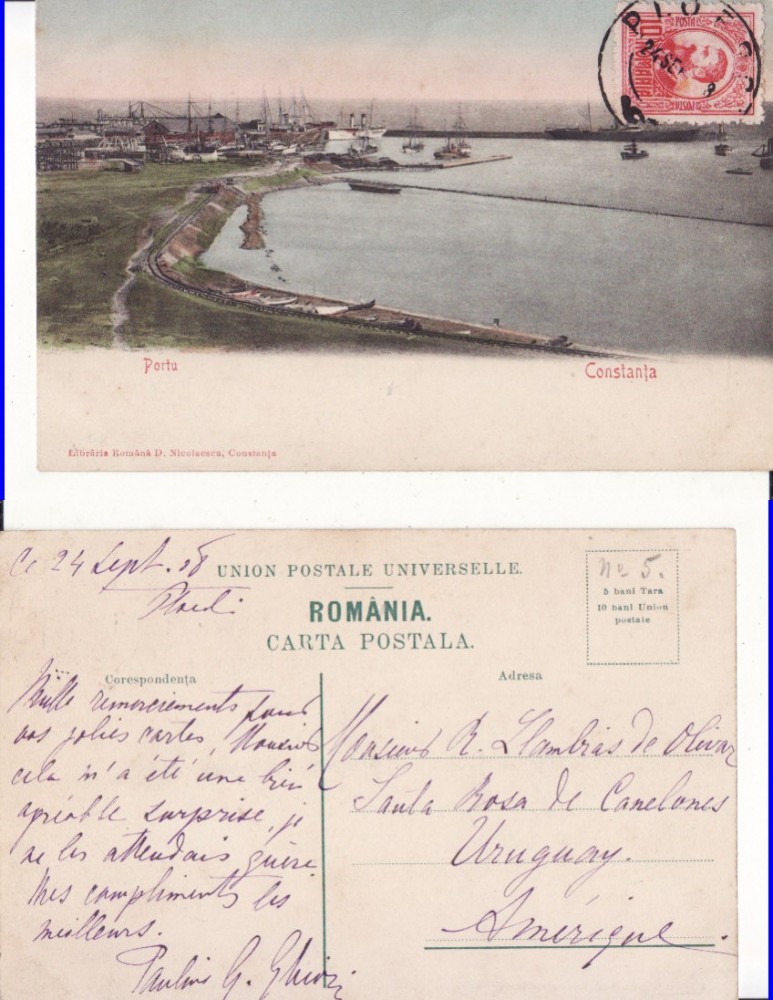 PLOEȘCI
24 SE 8
POSTA
10 BANI
Portu
Constanța
Librăria Română D. Nicolaescu, Constanța
Ce 24 Sept. 08
UNION POSTALE UNIVERSELLE.
ROMÂNIA.
CARTA POSTALA.
No 5.
5 bani Tara
10 bani Union
postale
Corespondența
Adresa
Mille remerciements pour
vos jolies cartes, Monsieur
cela m'a été une bien
agréable surprise, je
ne les attendais guère.
Mes compliments les
meilleurs.
G.
Monsieur R. Llambias de Olivar
Santa Rosa de Canelones
Uruguay.
Amérique